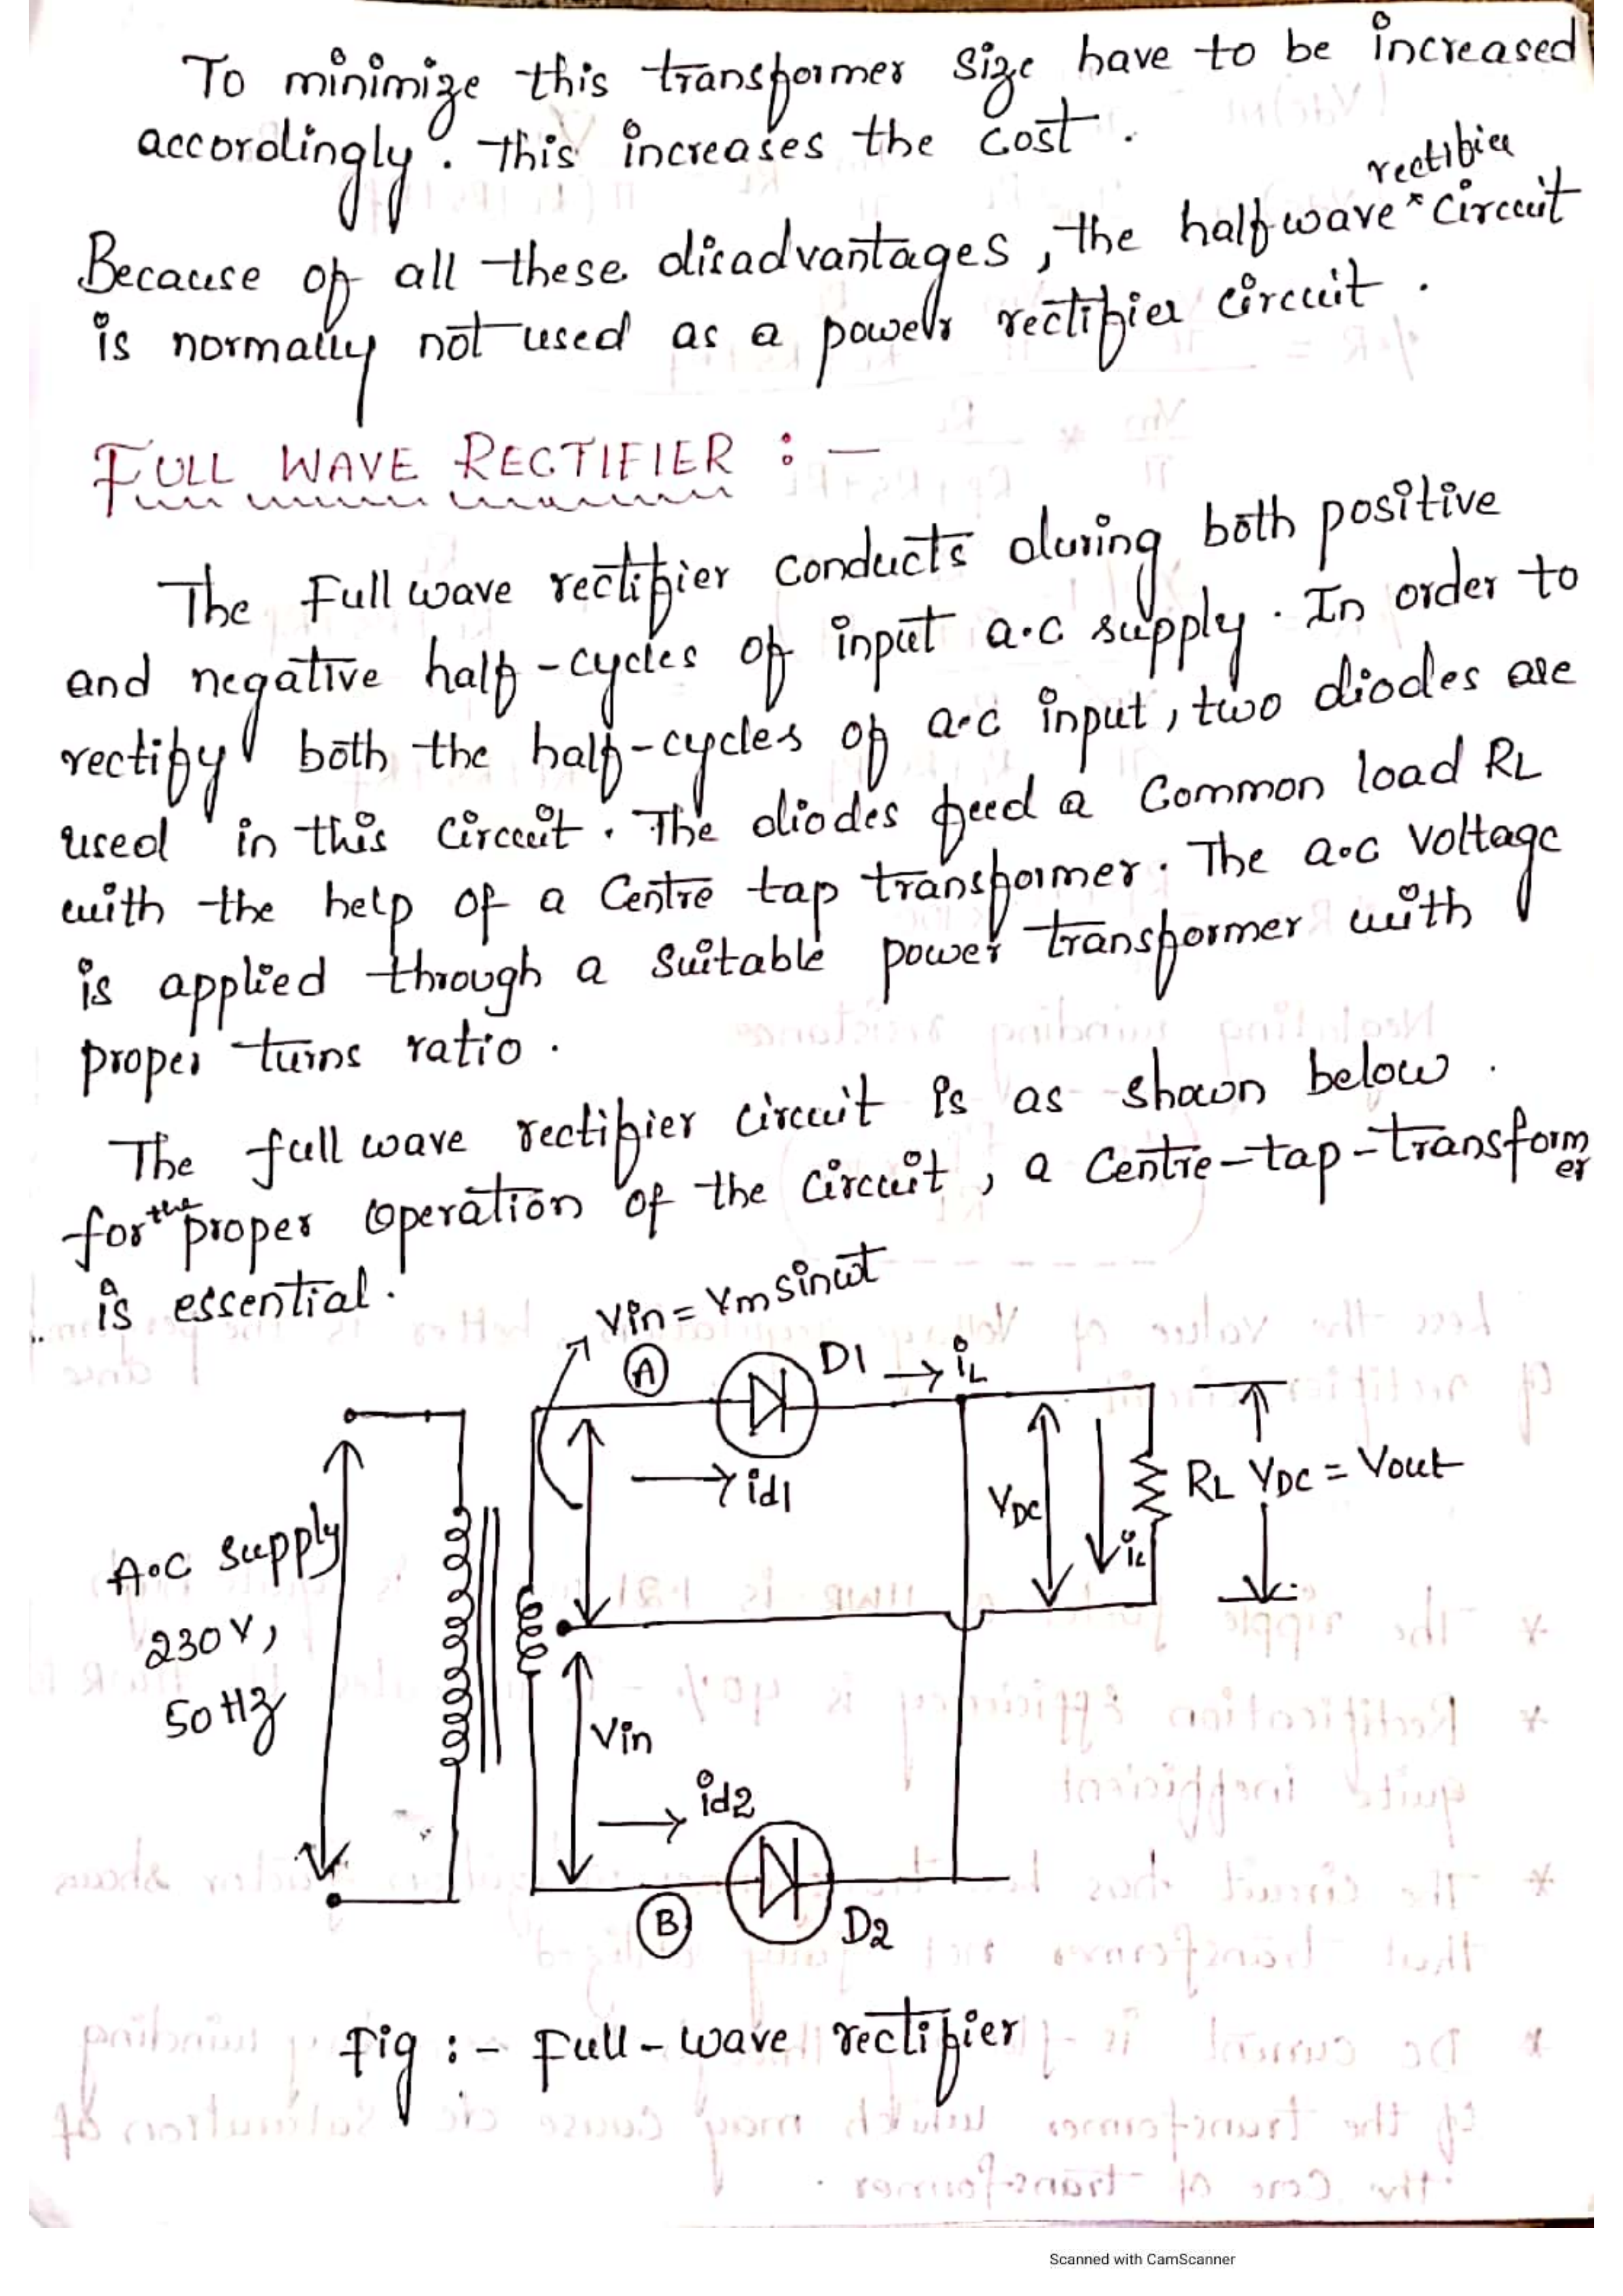 To minimize this transformer size have to be increased
accordingly. this increases the cost.
Because of all these disadvantages, the halfwave rectifier circuit
is normally not used as a power rectifier circuit.
FULL WAVE RECTIFIER :-
The Full wave rectifier conducts during both positive
and negative half-cycles of input a.c supply. In order to
rectify both the half-cycles of a.c input, two diodes are
used in this circuit. The diodes feed a common load RL
with the help of a Centre tap transformer. The a.c voltage
is applied through a suitable power transformer with
proper turns ratio.
The full wave rectifier circuit is as shown below.
for the proper operation of the circuit, a Centre-tap-transformer
is essential.
Vin = Vm sinωt
A
D1
iL
id1
A.C supply
230V,
50Hz
VDC
iL
RL
VDC = Vout
Vin
id2
B
D2
Fig :- Full-wave rectifier
Scanned with CamScanner